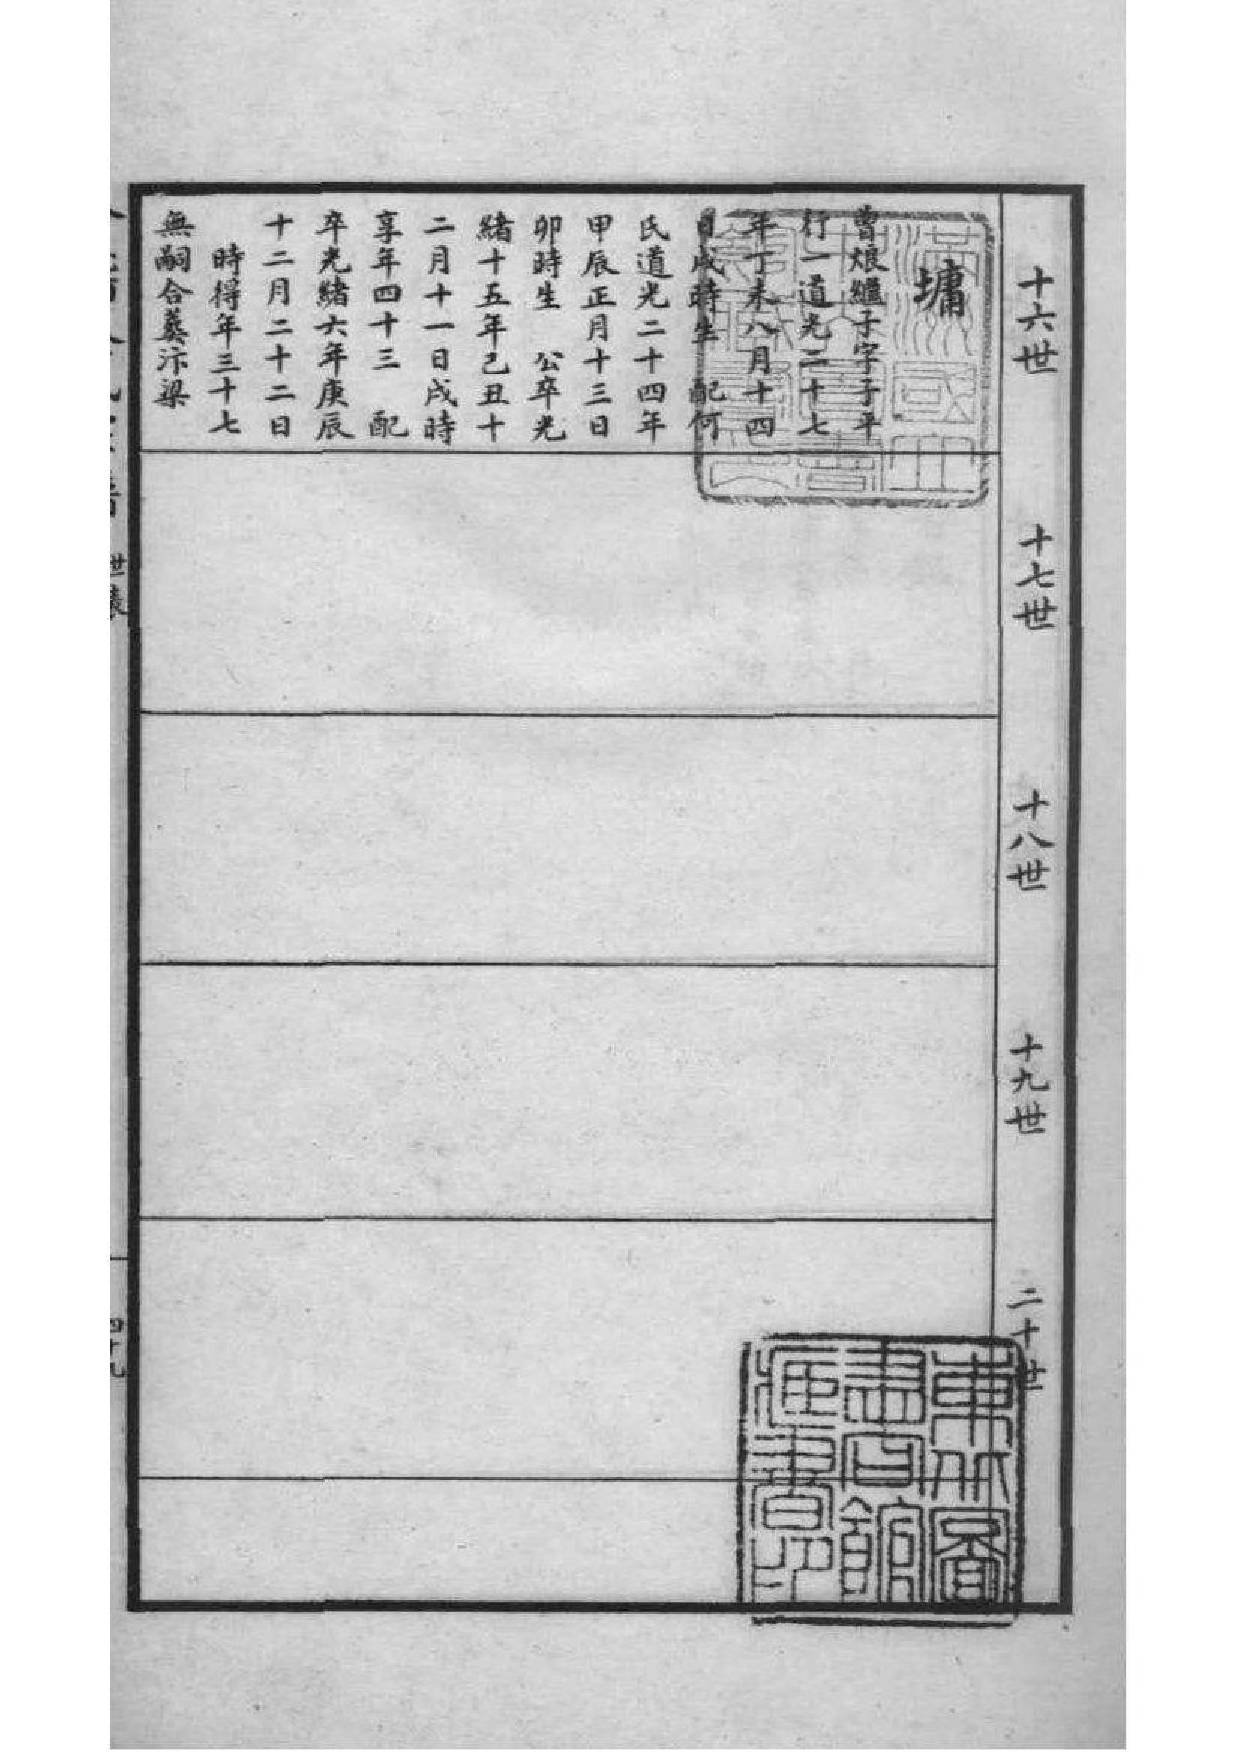 十六世
十七世
十八世
十九世
二十世
墉
曾烺繼子字子平
行一道光二十七
年丁未八月十四
日戌時生 配何
氏道光二十四年
甲辰正月十三日
卯時生 公卒光
緒十五年己丑十
二月十一日戌時
享年四十三 配
卒光緒六年庚辰
十二月二十二日
時得年三十七
無嗣合葬汴梁
東北圖
書館
藏書印
世表
四十九